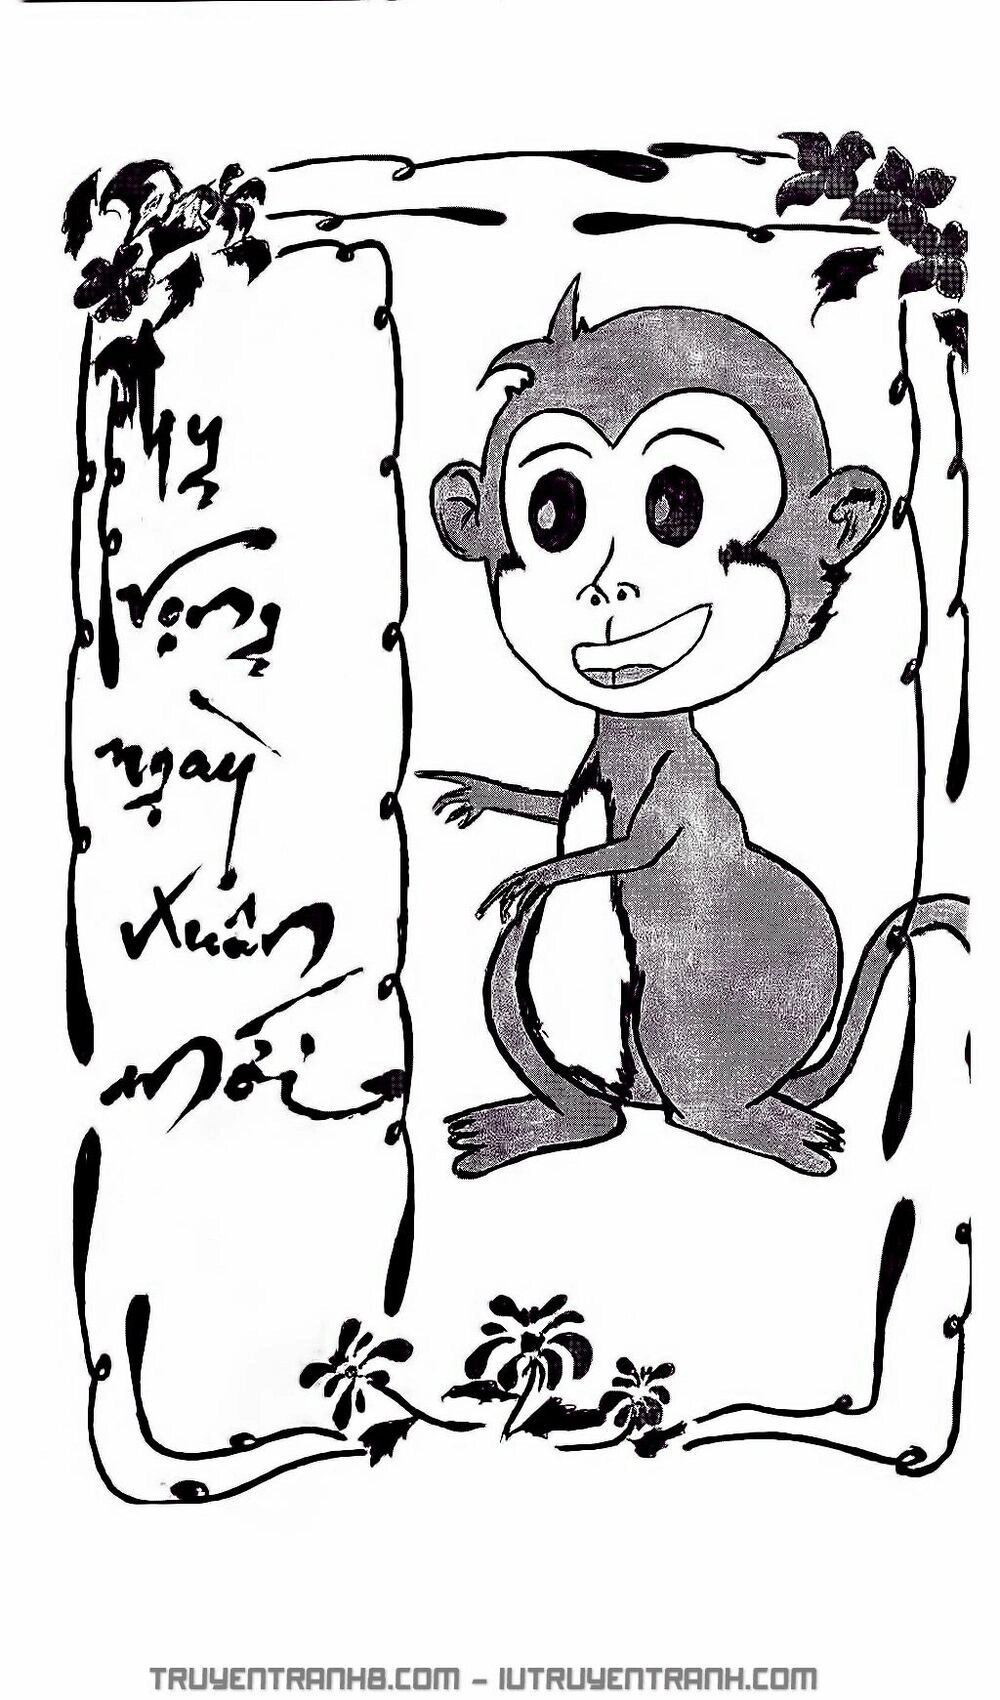 Hy
vọng
ngày
xuân
mới
TRUYENTRANH8.COM - IUTRUYENTRANH.COM